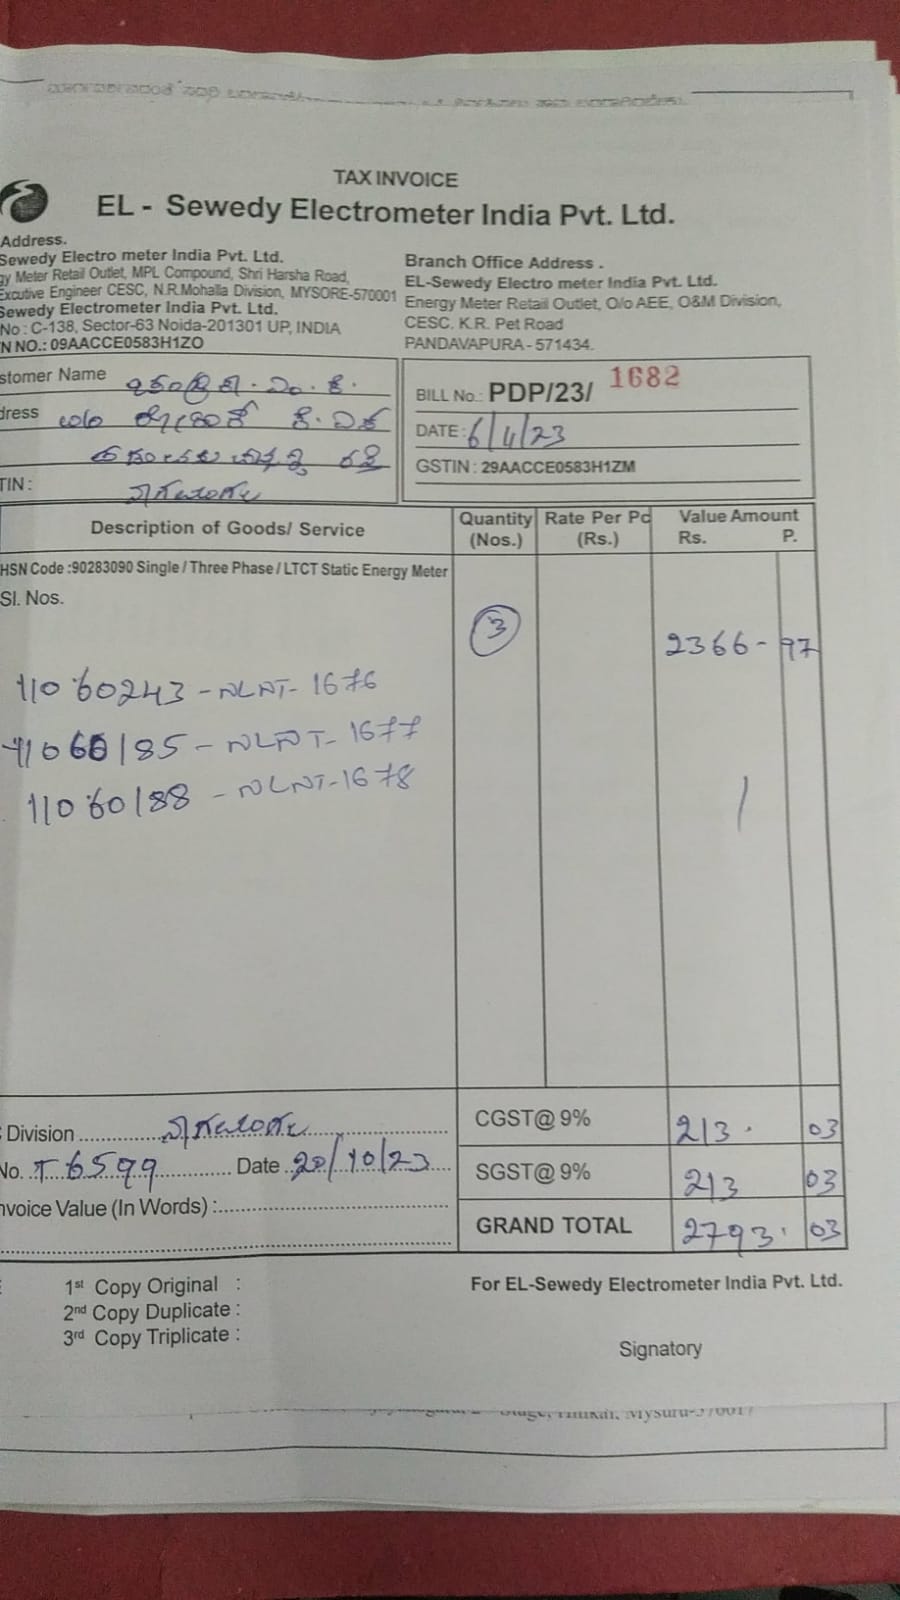 TAX INVOICE
EL - Sewedy Electrometer India Pvt. Ltd.
Address.
Sewedy Electro meter India Pvt. Ltd.
gy Meter Retail Outlet, MPL Compound, Shri Harsha Road,
Excutive Engineer CESC, N.R.Mohalla Division, MYSORE-570001
Sewedy Electrometer India Pvt. Ltd.
No : C-138, Sector-63 Noida-201301 UP, INDIA
N NO.: 09AACCE0583H1ZO
Branch Office Address .
EL-Sewedy Electro meter India Pvt. Ltd.
Energy Meter Retail Outlet, O/o AEE, O&M Division,
CESC. K.R. Pet Road
PANDAVAPURA - 571434.
stomer Name
dress
TIN :
BILL No.: PDP/23/ 1682
DATE : 6/4/23
GSTIN : 29AACCE0583H1ZM
Description of Goods/ Service Quantity (Nos.) Rate Per Pc (Rs.) Value Amount Rs. P.
HSN Code :90283090 Single / Three Phase / LTCT Static Energy Meter
Sl. Nos.
3 2366 - 97
11060243 - NLNT - 1676
11060185 - NLNT - 1677
11060188 - NLNT - 1678
CGST@ 9% 213. 03
Division
No. T 6599 Date 20/10/23
SGST@ 9% 213 03
nvoice Value (In Words) :
GRAND TOTAL 2793. 03
1st Copy Original :
2nd Copy Duplicate :
3rd Copy Triplicate :
For EL-Sewedy Electrometer India Pvt. Ltd.
Signatory